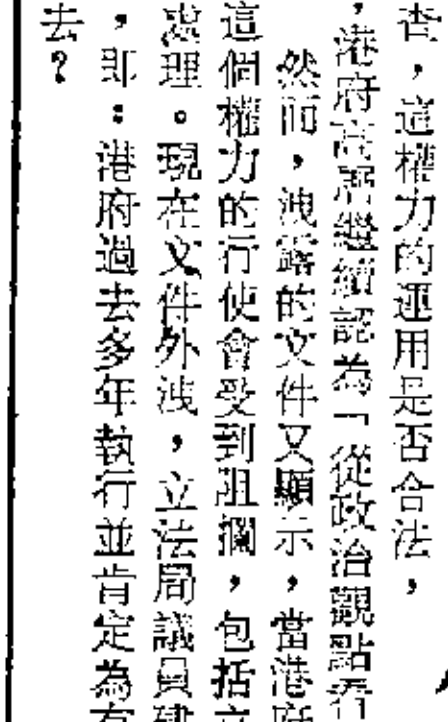 查，這權力的運用是否合法，
，港府高層繼續認為「從政治觀點看
然而，洩露的文件又顯示，當港府
這個權力的行使會受到阻攔，包括立
處理。現在文件外洩，立法局議員建
，即：港府過去多年執行並肯定為有
去？